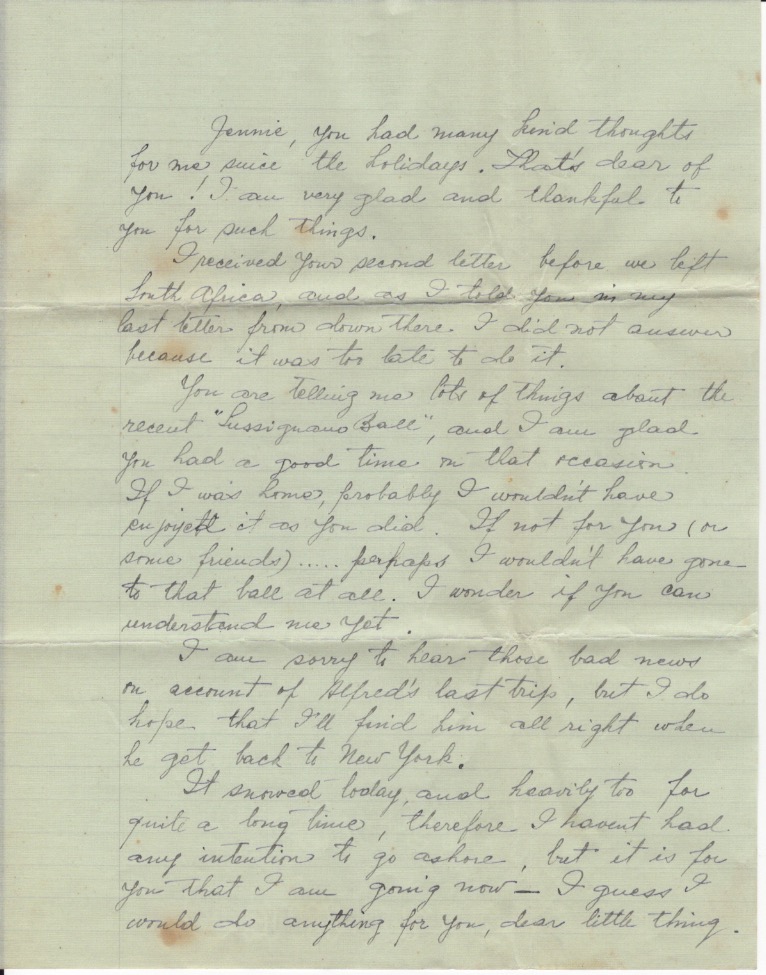 Jennie, you had many kind thoughts
for me since the holidays. That's dear of
you! I am very glad and thankful to
you for such things.
I received your second letter before we left
South Africa, and as I told you in my
last letter from down there. I did not answer
because it was too late to do it.
You are telling me lots of things about the
recent "Lussignano Ball", and I am glad
you had a good time on that occasion.
If I was home, probably I wouldn't have
enjoyed it as you did. If not for you (or
some friends)..... perhaps I wouldn't have gone
to that ball at all. I wonder if you can
understand me yet.
I am sorry to hear those bad news
on account of Alfred's last trip, but I do
hope that I'll find him all right when
he get back to New York.
It snowed today, and heavily too for
quite a long time, therefore I havent had
any intention to go ashore, but it is for
you that I am going now — I guess I
would do anything for you, dear little thing.